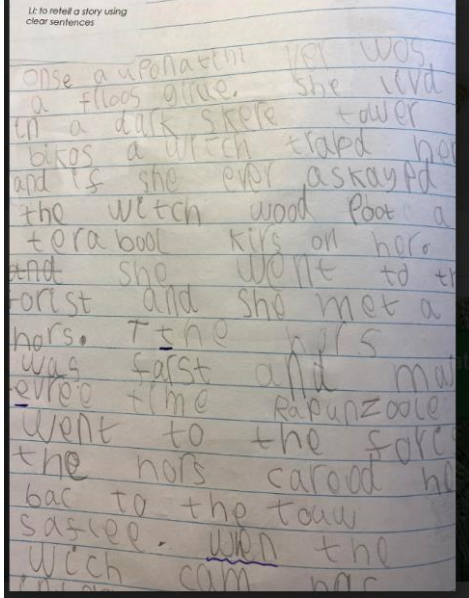 LI: to retell a story using
clear sentences
onse a uponatim ver wos
a flloos giue. she livd
in a dark skere tower
bikos a witch trapd her
and if she ever askaypd
the witch wood poot a
terabool kirs on her.
and she went to th
forist and she met a
hors. The hors
was farst and ma
evree time Rapunzoole
went to the fore
the hors carood he
bac to the touw
saflee. when the
wich cam bac